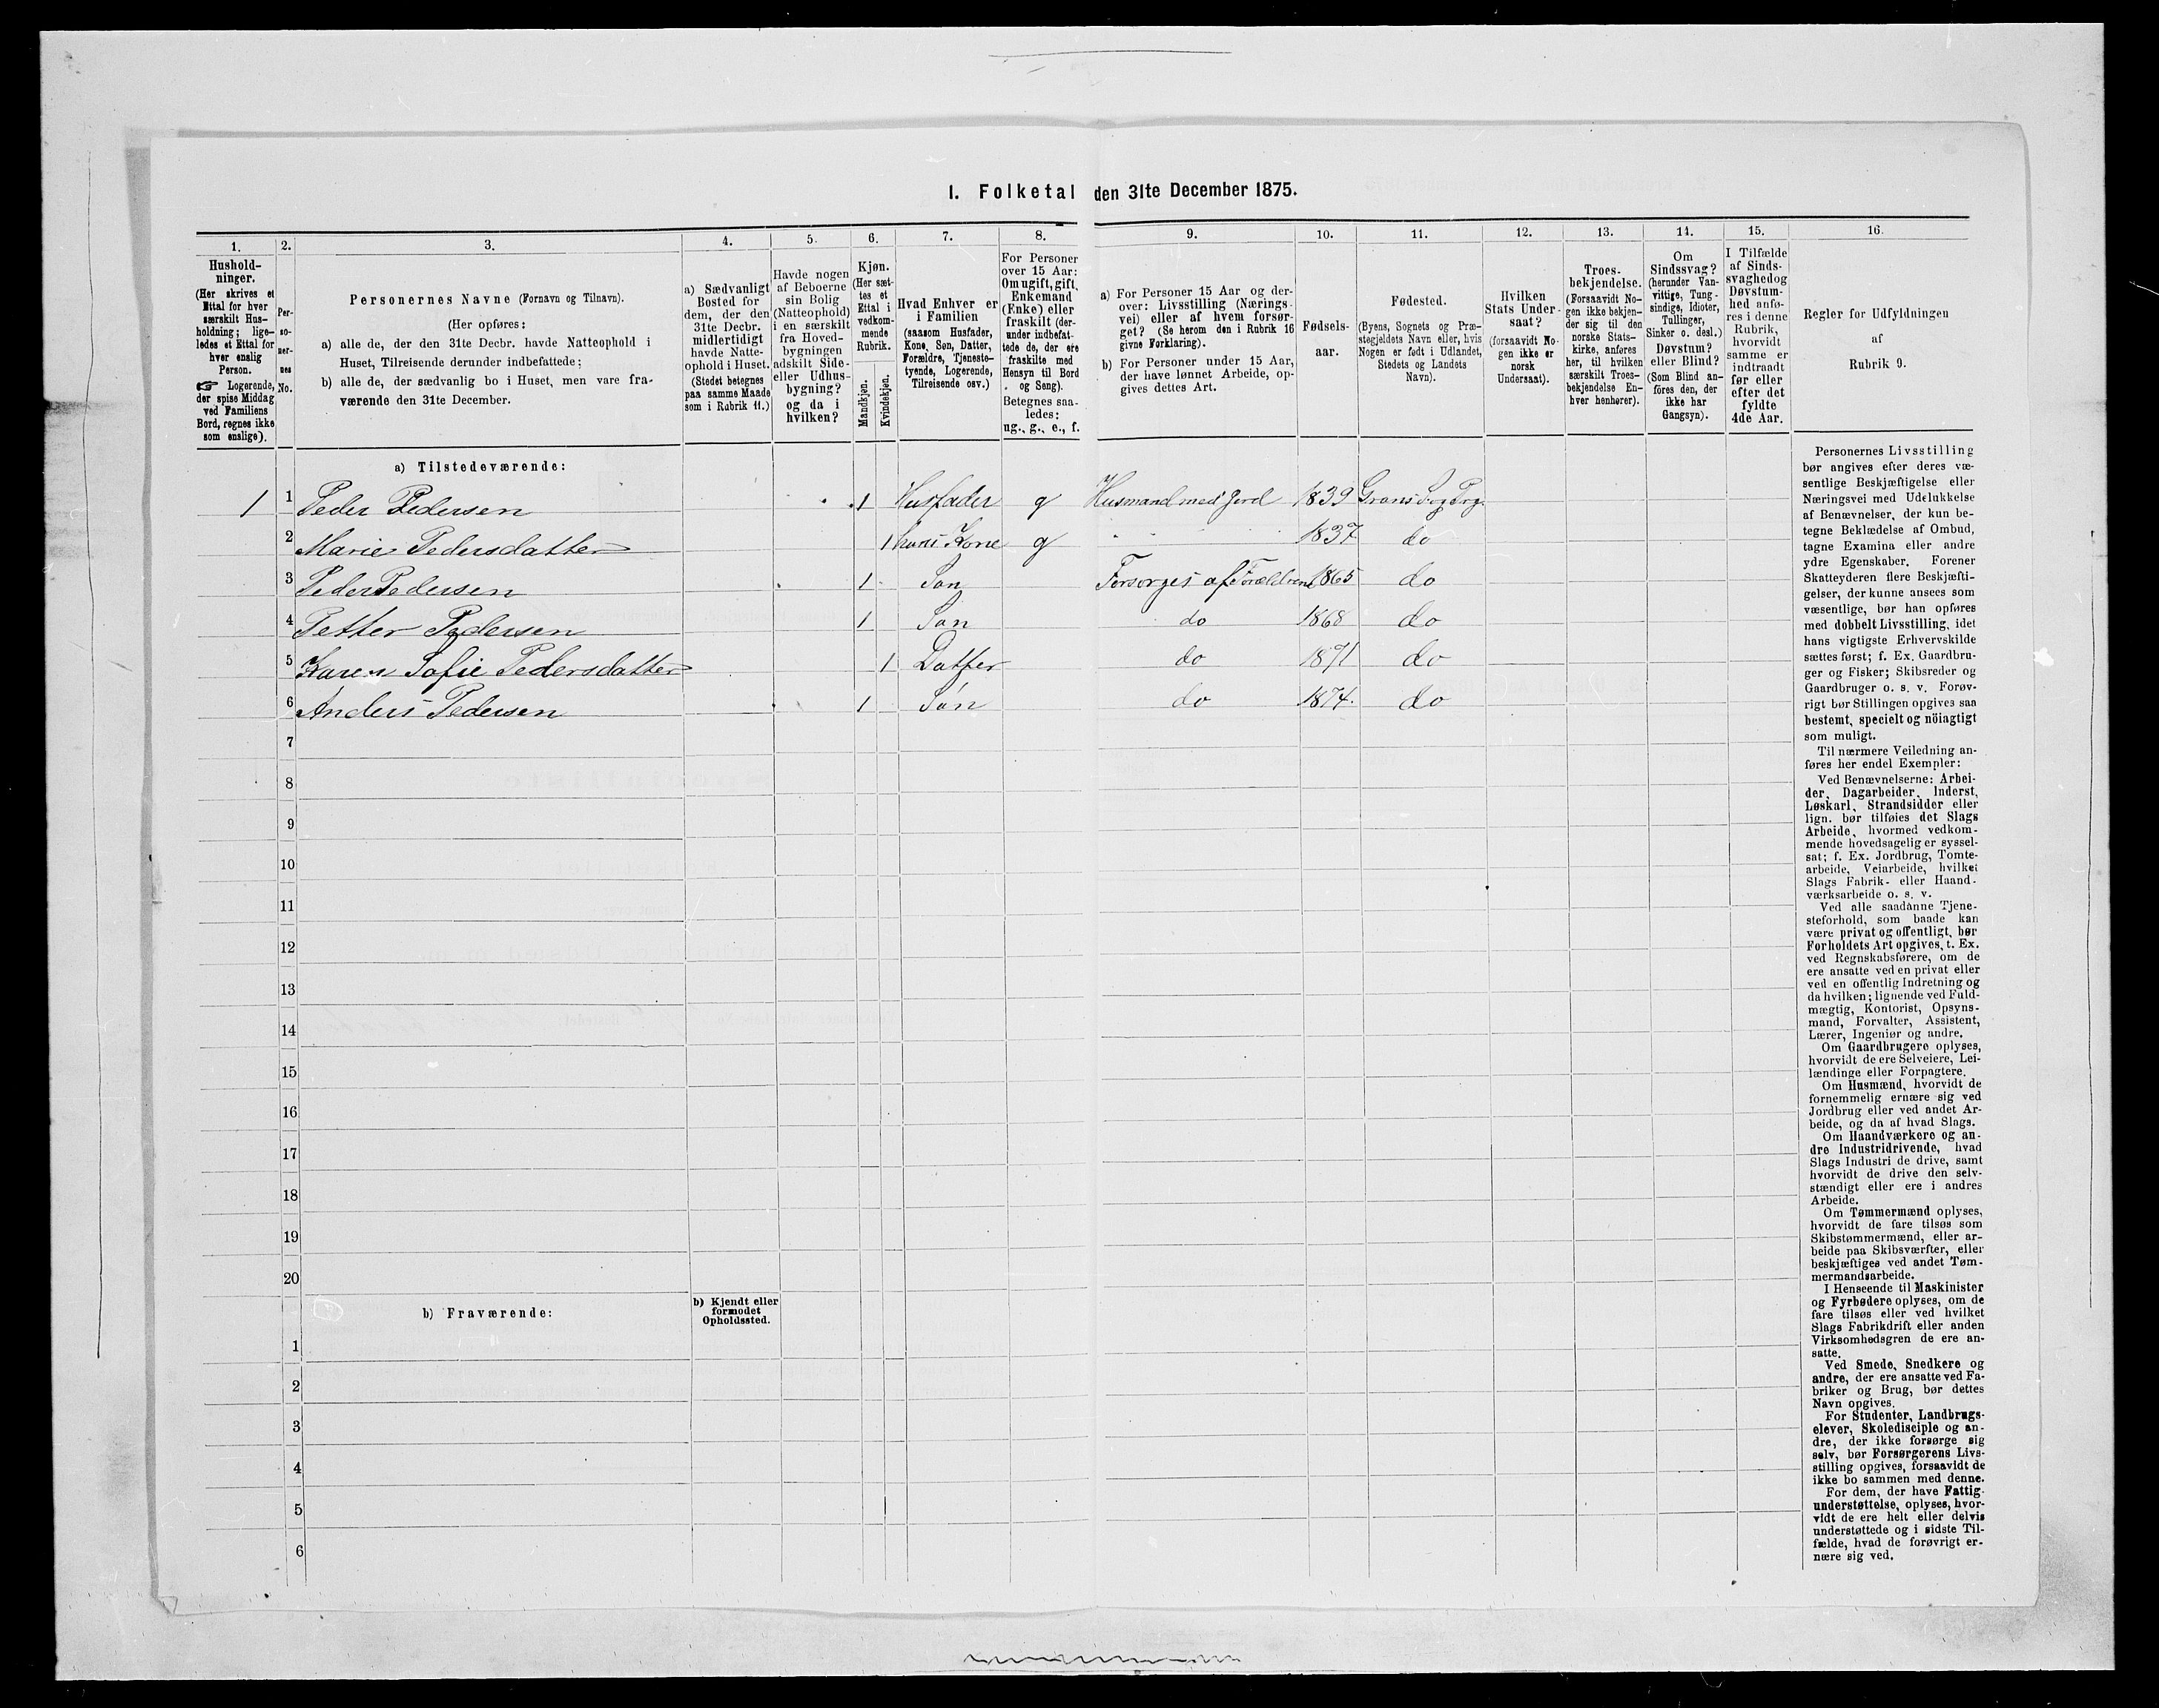 I. Folketal den 31te December 1875.
1. 2. 3. 4. 5. 6. 7. 8. 9. 10. 11. 12. 13. 14. 15. 16.
Hushold-
ninger.
(Her skrives et
Ettal for hver
særskilt Hus-
holdning; lige-
ledes et Ettal for
hver enslig
Person.
☞ Logerende,
der spise Middag
ved Familiens
Bord, regnes ikke
som enslige).
Per-
so-
ner-
nes
No.
Personernes Navne (Fornavn og Tilnavn).
(Her opføres:
a) alle de, der den 31te Decbr. havde Natteophold i
Huset, Tilreisende derunder indbefattede;
b) alle de, der sædvanlig bo i Huset, men vare fra-
værende den 31te December.
a) Sædvanligt
Bosted for
dem, der den
31te Decbr.
midlertidigt
havde Natte-
ophold i Huset.
(Stedet betegnes
paa samme Maade
som i Rubrik 11.)
Havde nogen
af Beboerne
sin Bolig
(Natteophold)
i en særskilt
fra Hoved-
bygningen
adskilt Side-
eller Udhus-
bygning?
og da i
hvilken?
Kjøn.
(Her sæt-
tes et
Ettal i
vedkom-
mende
Rubrik.
Mandkjøn.
Kvindekjøn.
Hvad Enhver er
i Familien
(saasom Husfader,
Kone, Søn, Datter,
Forældre, Tjeneste-
tyende, Logerende,
Tilreisende osv.)
For Personer
over 15 Aar:
Om ugift, gift,
Enkemand
(Enke) eller
fraskilt (der-
under indbefat-
tede de, der ere
fraskilte med
Hensyn til Bord
og Seng).
Betegnes saa-
ledes:
ug., g., e., f.
a) For Personer 15 Aar og der-
over: Livsstilling (Nærings-
vei) eller af hvem forsør-
get? (Se herom den i Rubrik 16
givne Forklaring).
b) For Personer under 15 Aar,
der have lønnet Arbeide, op-
gives dettes Art.
Fødsels-
aar.
Fødested.
(Byens, Sognets og Præ-
stegjeldets Navn eller, hvis
Nogen er født i Udlandet,
Stedets og Landets
Navn).
Hvilken
Stats Under-
saat?
(forsaavidt No-
gen ikke er
norsk
Undersaat).
Troes-
bekjendelse.
(Forsaavidt No-
gen ikke bekjen-
der sig til den
norske Stats-
kirke, anføres
her, til hvilken
særskilt Troes-
bekjendelse En-
hver henhører).
Om
Sindssvag?
(herunder Van-
vittige, Tung-
sindige, Idioter,
Tullinger,
Sinker o. desl.)
Døvstum?
eller Blind?
(Som Blind an-
føres den, der
ikke har
Gangsyn).
I Tilfælde
af Sinds-
svaghed og
Døvstum-
hed anfø-
res i denne
Rubrik,
hvorvidt
samme er
indtraadt
før eller
efter det
fyldte
4de Aar.
Regler for Udfyldningen
af
Rubrik 9.
a) Tilstedeværende:
1 1 Peder Pedersen 1 Husfader g Husmand med Jord 1839 Grans Sog Prg.
2 Marie Pedersdatter 1 hans Kone g 1837 do
3 Peder Pedersen 1 Søn Forsorges af Forældrene 1865 do
4 Petter Pedersen 1 Søn do 1868 do
5 Karen Sofie Pedersdatter 1 Datter do 1871 do
6 Anders Pedersen 1 Søn do 1874. do
7
8
9
10
11
12
13
14
15
16
17
18
19
20
b) Fraværende:
b) Kjendt eller
formodet
Opholdssted.
1
2
3
4
5
6
Personernes Livsstilling
bør angives efter deres væ-
sentlige Beskjæftigelse eller
Næringsvei med Udelukkelse
af Benævnelser, der kun be-
tegne Beklædelse af Ombud,
tagne Examina eller andre
ydre Egenskaber. Forener
Skatteyderen flere Beskjæfti-
gelser, der kunne ansees som
væsentlige, bør han opføres
med dobbelt Livsstilling, idet
hans vigtigste Erhvervskilde
sættes først; f. Ex. Gaardbru-
ger og Fisker; Skibsreder og
Gaardbruger o. s. v. Forøv-
rigt bør Stillingen opgives saa
bestemt, specielt og nöiagtigt
som muligt.
Til nærmere Veiledning an-
føres her endel Exempler:
Ved Benævnelserne: Arbei-
der, Dagarbeider, Inderst,
Løskarl, Strandsidder eller
lign. bør tilføies det Slags
Arbeide, hvormed vedkom-
mende hovedsagelig er syssel-
sat; f. Ex. Jordbrug, Tomte-
arbeide, Veiarbeide, hvilket
Slags Fabrik- eller Haand-
værksarbeide o. s. v.
Ved alle saadanne Tjene-
steforhold, som baade kan
være privat og offentligt, bør
Forholdets Art opgives, t. Ex.
ved Regnskabsførere, om de
ere ansatte ved en privat eller
ved en offentlig Indretning og
da hvilken; lignende ved Fuld-
mægtig, Kontorist, Opsyns-
mand, Forvalter, Assistent,
Lærer, Ingeniør og andre.
Om Gaardbrugere oplyses,
hvorvidt de ere Selveiere, Lei-
lændinge eller Forpagtere.
Om Husmænd, hvorvidt de
fornemmelig ernære sig ved
Jordbrug eller ved andet Ar-
beide, og da af hvad Slags.
Om Haandværkere og an-
dre Industridrivende, hvad
Slags Industri de drive, samt
hvorvidt de drive den selv-
stændigt eller ere i andres
Arbeide.
Om Tømmermænd oplyses,
hvorvidt de fare tilsøs som
Skibstømmermænd, eller ar-
beide paa Skibsværfter, eller
beskjæftiges ved andet Tøm-
mermandsarbeide.
I Henseende til Maskinister
og Fyrbødere oplyses, om de
fare tilsøs eller ved hvilket
Slags Fabrikdrift eller anden
Virksomhedsgren de ere an-
satte.
Ved Smede, Snedkere og
andre, der ere ansatte ved Fa-
briker og Brug, bør dettes
Navn opgives.
For Studenter, Landbrugs-
elever, Skoledisciple og an-
dre, der ikke forsørge sig
selv, bør Forsørgerens Livs-
stilling opgives, forsaavidt de
ikke bo sammen med denne.
For dem, der have Fattig-
understøttelse, oplyses, hvor-
vidt de ere helt eller delvis
understøttede og i sidste Til-
fælde, hvad de forøvrigt er-
nære sig ved.